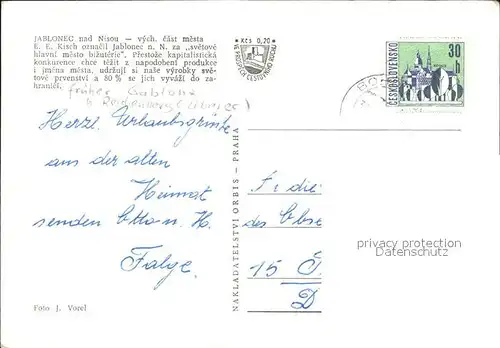 JABLONEC nad Nisou – vých. část města
E. E. Kisch označil Jablonec n. N. za „světové
hlavní město bižutérie". Přestože kapitalistická
konkurence chce těžit z napodobení produkce
i jména města, udržují si naše výrobky svě-
tové prvenství a 80 % se jich vyváží do za-
hraničí.
früher Gablonz
b Reichenberg (Liberec)
Kčs 0,20
ČESKOSLOVENSKO
30 h
Herzl. Urlaubsgrüße
aus der alten
Heimat
senden Otto u. H.
Falge.
NAKLADATELSTVÍ ORBIS – PRAHA
des
15
D
privacy protection
Datenschutz
Foto J. Vorel